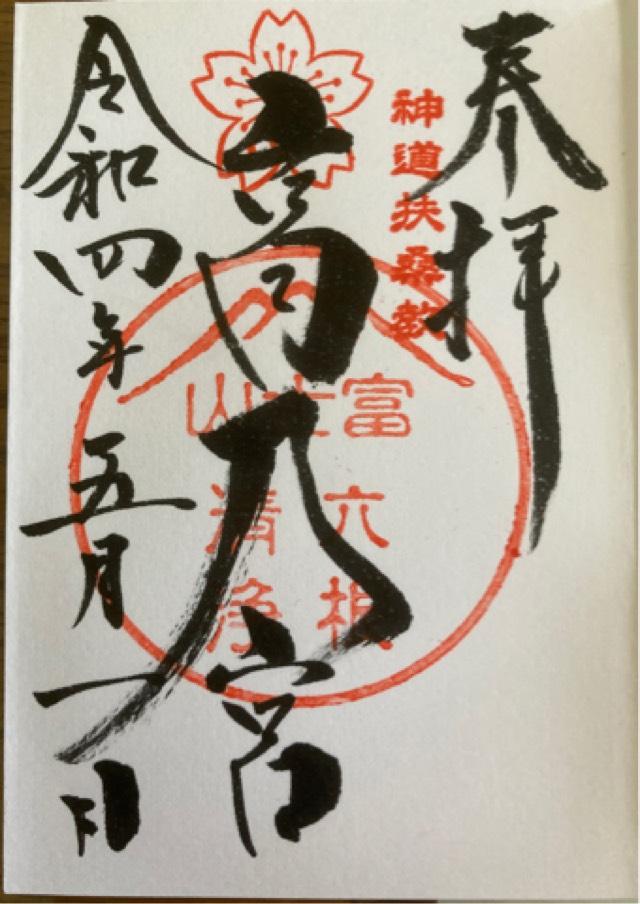 奉拝
神道扶桑教
高乃宮
富士山
六根
清浄
令和四年五月一日